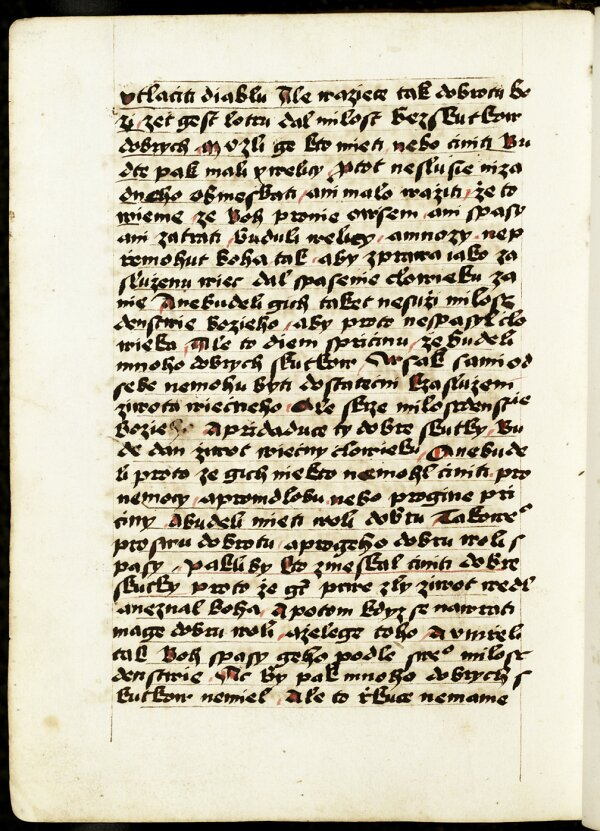 vtlaciti diablu Ale waziece tak dobrotu bo
zi, zet gest lotru dal milost bez skutkow
dobrych Muzli ge kto mieti nebo ciniti Bu
dte pak mali y welicy Ptot neslusie niza
dneho obmeskati, ani malo waziti, ze to
wieme ze Boh pronie owsem ani spasy
ani zatrati buduli welicy, amnozy nep
remohut boha tak, aby zprawa iako za
sluzenu wiec dal spasenie clowieku za
nie Anebudeli gich taket nesuzi milosr
denstwie bozieho, aby proto nespasyl clo
wieka, Ale to diem spricinu, ze budeli
mnoho dobrych skutkow Wssak sami od
sebe nemohu byti dostatecni kzasluzem
ziwota wiecneho Ale skrze milosrdenstwie
bozieho Apridaduce ty dobre skutky, bu
de dan ziwot wiecny clowieku Anebude
li proto ze gich niekto nemohl ciniti pro
nemocy apromdlobu nebo progine pri
ciny Abudeli mieti woli dobru Takowe°
pro swu dobrotu aprogeho dobru woli s
pasy, Pakliby kto zmeskal ciniti dobre
skutky proto ze gt prwe zly ziwot wedl
aneznal boha Apotom kdyz se nawrati
mage dobru woli azelege toho Aumreli
tak Boh spasy geho podle swe° milosr
denstwie Ac by pak mnoho dobrych s
kutkow nemiel Ale to rkuce nemame